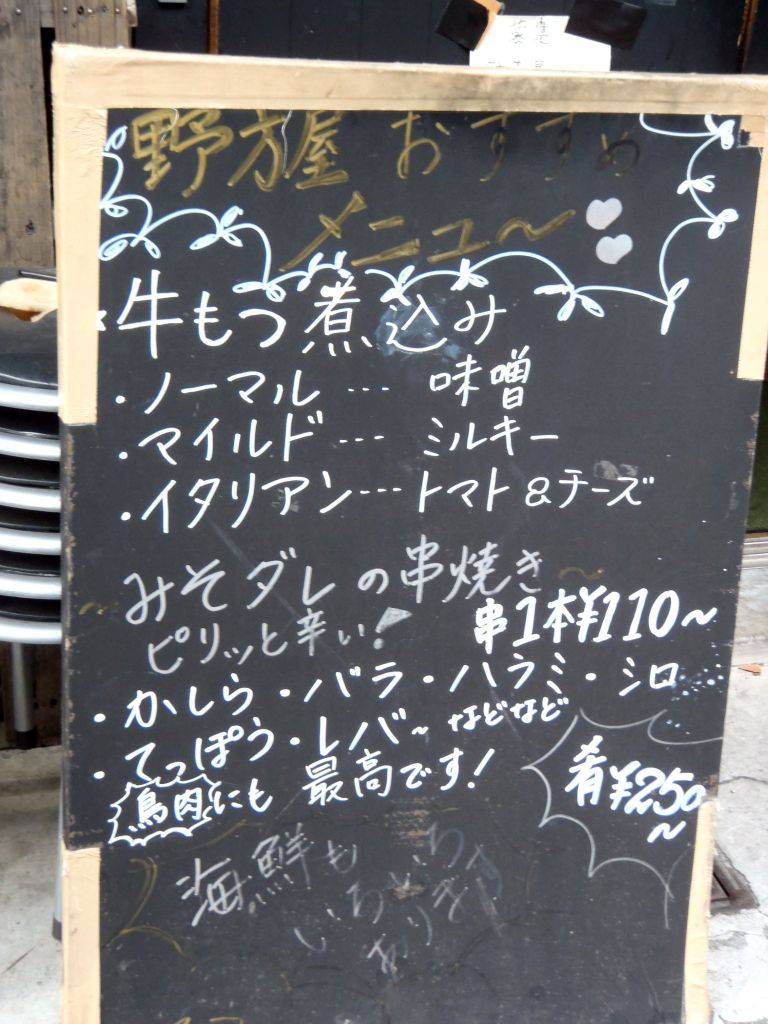 野方屋 おすすめ
メニュー〜
牛もつ煮込み
・ノーマル … 味噌
・マイルド … ミルキー
・イタリアン … トマト&チーズ
みそダレの串焼き〜
ピリッと辛い!
串1本¥110〜
・かしら・バラ・ハラミ・シロ
・てっぽう・レバ〜 などなど
鳥肉にも 最高です!
肴¥250〜
海鮮も
いろいろ
あります